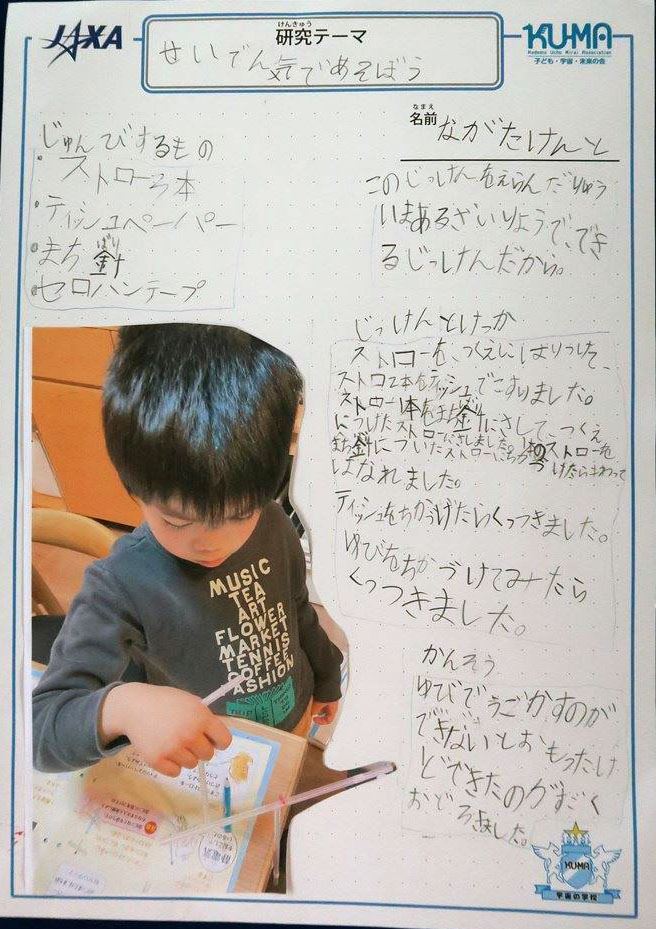 JAXA
けんきゅう
研究テーマ
せいでん気であそばう
KU-MA
Kodomo Uchu Mirai Association
子ども・宇宙・未来の会
なまえ
名前 ながたけんと
じゅんびするもの
・ストロー3本
・ティッシュペーパー
・まち針
ばり
・セロハンテープ
このじっけんをえらんだりゆう
いまあるざいりょうで、でき
るじっけんだから。
じっけんとけっか
ストローを、つくえにはりつけて、
ストロー2本をティッシュでこすりました。
ストロー1本をまち針
につけたストロー針にさして、つくえ
まち針についたストローにちかづけたらまわって
はなれました。
ティッシュをちかづけたらくっつきました。
ゆびをちかづけてみたら
くっつきました。
かんそう
ゆびでうごかすのが
できないとおもったけ
どできたのがすごく
おどろきました。
MUSIC
TEA
ART
FLOWER
MARKET
TENNIS
COFFEE
FASHION
静電気
KU-MA
宇宙の学校